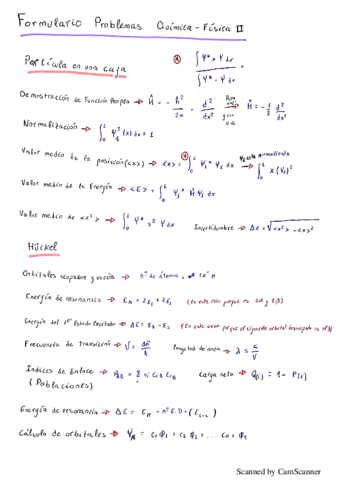 Formulario Problemas Química-Física II
Partícula en una caja
∫ψ* x ψ dx / ∫ψ* · ψ dx =
Demostración de Función Propia → Ĥ = - ħ²/2m · d²/dx² → Ĥ = - 1/2 d²/dx²
Normalización → ∫₀ᴸ ψ₁²(x) dx = 1
Valor medio de la posición (<x>) → <x> = ∫₀ᴸ ψ₁* x ψ₁ dx → ∫₀ᴸ x(ψ₁)²
Valor medio de la Energía → <E> = ∫₀ᴸ ψ₁* Ĥ ψ₁ dx
Valor medio de <x²> → ∫₀ᴸ ψ* x² ψ dx Incertidumbre → Δx = √<x²> - <x>²
Hückel
Orbitales ocupados y vacíos → nº de átomos
Energía de resonancia → = 2E₁ + 2E₂ (En este caso porque es 2α y 2β)
Energía del 1er Estado Excitado → ΔE = E₃ - E₂ (En este caso porque el siguiente orbital es el)
Frecuencia de Transición → ν = ΔE/h longitud de onda → λ = c/ν
Indices de Enlace → = Σ ni Ci Ci carga neta → q(i) = 1 - P(i)
(Poblaciones)
Energía de resonancia → ΔE = Eπ - nºE.D · (E c=c)
Cálculo de orbitales → ψ = c₁φ₁ + c₂φ₂ + ...
Scanned by CamScanner